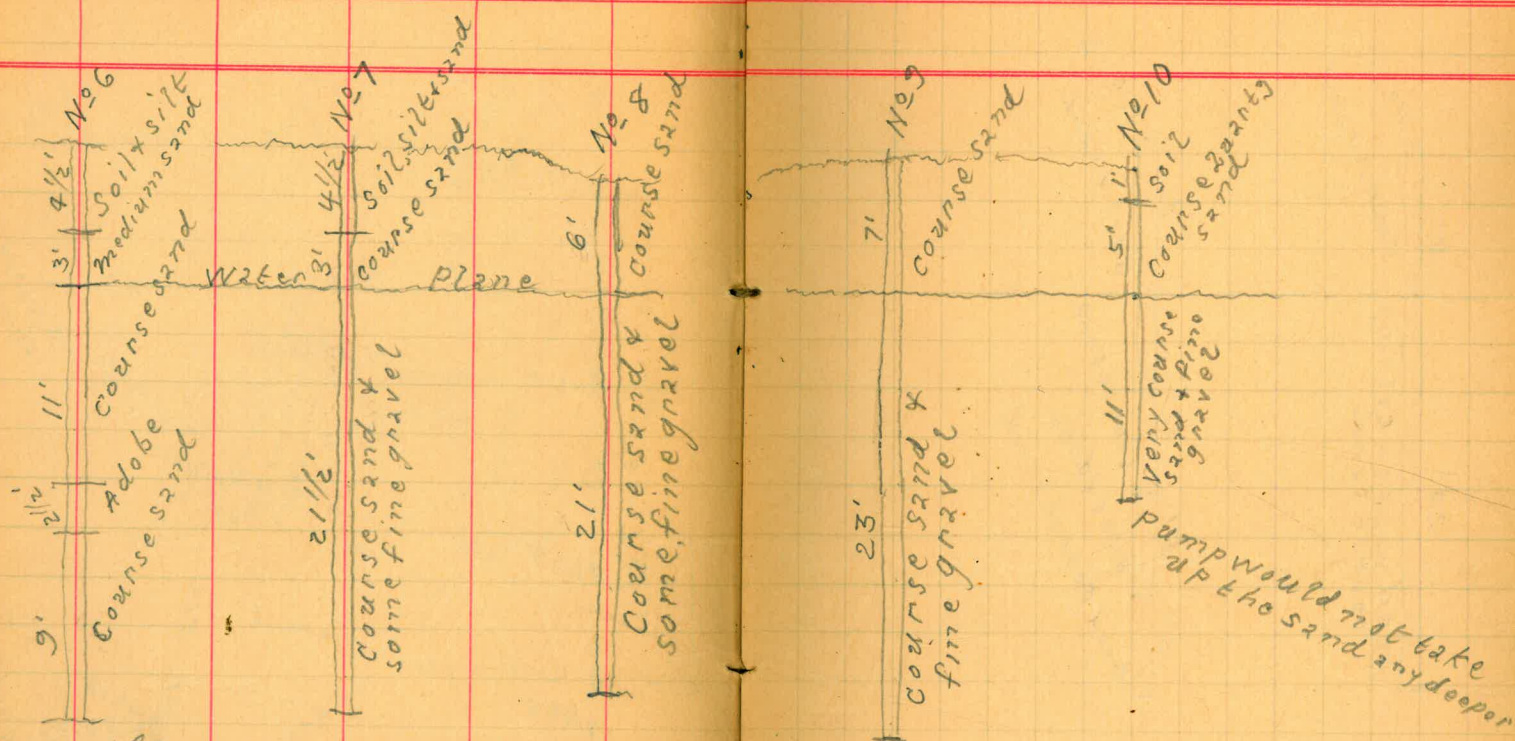 No 6
4 1/2'
Soil & silt
3'
medium sand
11'
Course sand
2 1/2'
Adobe
9'
Course sand
Water Plane
No 7
4 1/2'
Soil, silt & sand
3'
Course sand
21 1/2'
Course sand &
some fine gravel
No 8
6'
Course sand
21'
Course sand &
some, fine gravel
No 9
7'
Course sand
23'
Course sand &
fine gravel
No 10
1'
Soil
5'
Course 2uarty
sand
11'
Very course
sand & fine
gravel
pump would not take
up the sand any deeper